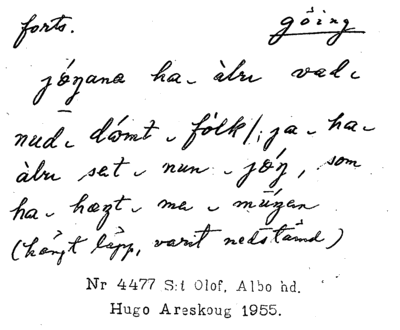 forts. gǒing
jǿʒana ha- àlrı vad-
nud- dǿmt - fólk/; ja - ha-
àlrı set - nun - jǿʒ, som
ha - hæŋt - me - mūʒan
(hängt läpp, varit nedstämd)
Nr 4477 S:t Olof, Albo hd.
Hugo Areskoug 1955.